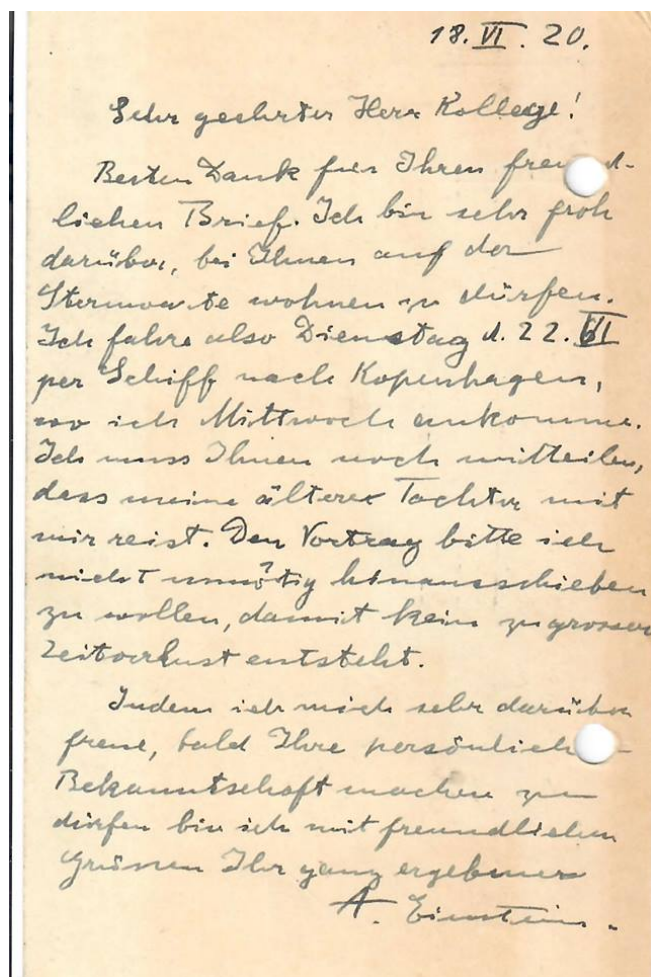 18. VI. 20.
Sehr geehrter Herr Kollege!
Besten Dank für Ihren freund-
lichen Brief. Ich bin sehr froh
darüber, bei Ihnen auf der
Sternwarte wohnen zu dürfen.
Ich fahre also Dienstag d. 22. VI
per Schiff nach Kopenhagen,
wo ich Mittwoch ankomme.
Ich muss Ihnen noch mitteilen,
dass meine ältere Tochter mit
mir reist. Den Vortrag bitte ich
nicht unnötig hinausschieben
zu wollen, damit kein zu grosser
Zeitverlust entsteht.
Indem ich mich sehr darüber
freue, bald Ihre persönliche
Bekanntschaft machen zu
dürfen bin ich mit freundlichen
Grüssen Ihr ganz ergebener
A. Einstein.